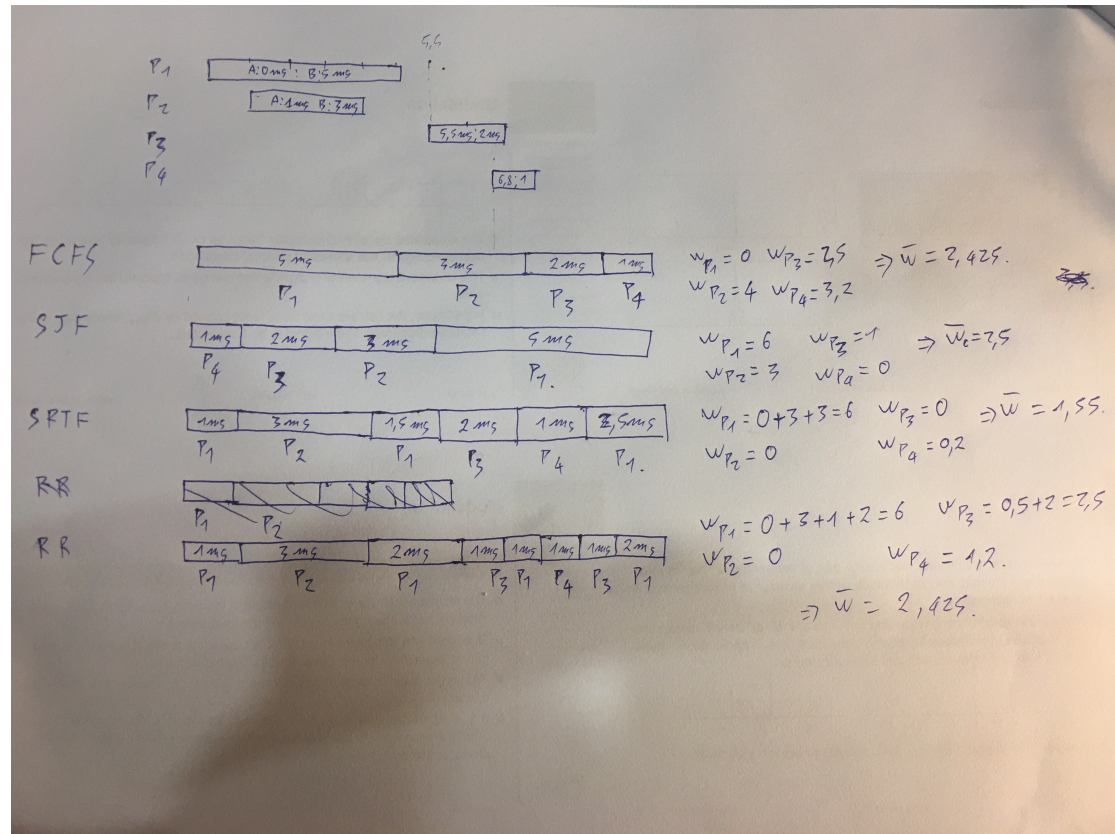 5,5
P1 A:0ms: B:5ms
P2 A:1ms B:3ms
P3 5,5ms; 2ms
P4 6,8; 1
FCFS 5ms 3ms 2ms 1ms
P1 P2 P3 P4
wP1 = 0 wP3 = 2,5 ⇒ w̄ = 2,425.
wP2 = 4 wP4 = 3,2
SJF 1ms 2ms 3ms 5ms
P4 P3 P2 P1.
wP1 = 6 wP3 = 1 ⇒ w̄ = 2,5
wP2 = 3 wP4 = 0
SRTF 1ms 3ms 1,5ms 2ms 1ms 2,5ms
P1 P2 P1 P3 P4 P1.
wP1 = 0+3+3 = 6 wP3 = 0 ⇒ w̄ = 1,55.
wP2 = 0 wP4 = 0,2
RR
P1 P2
RR 1ms 3ms 2ms 1ms 1ms 1ms 1ms 2ms
P1 P2 P1 P3 P1 P4 P3 P1
wP1 = 0+3+1+2 = 6 wP3 = 0,5+2 = 2,5
wP2 = 0 wP4 = 1,2.
⇒ w̄ = 2,425.